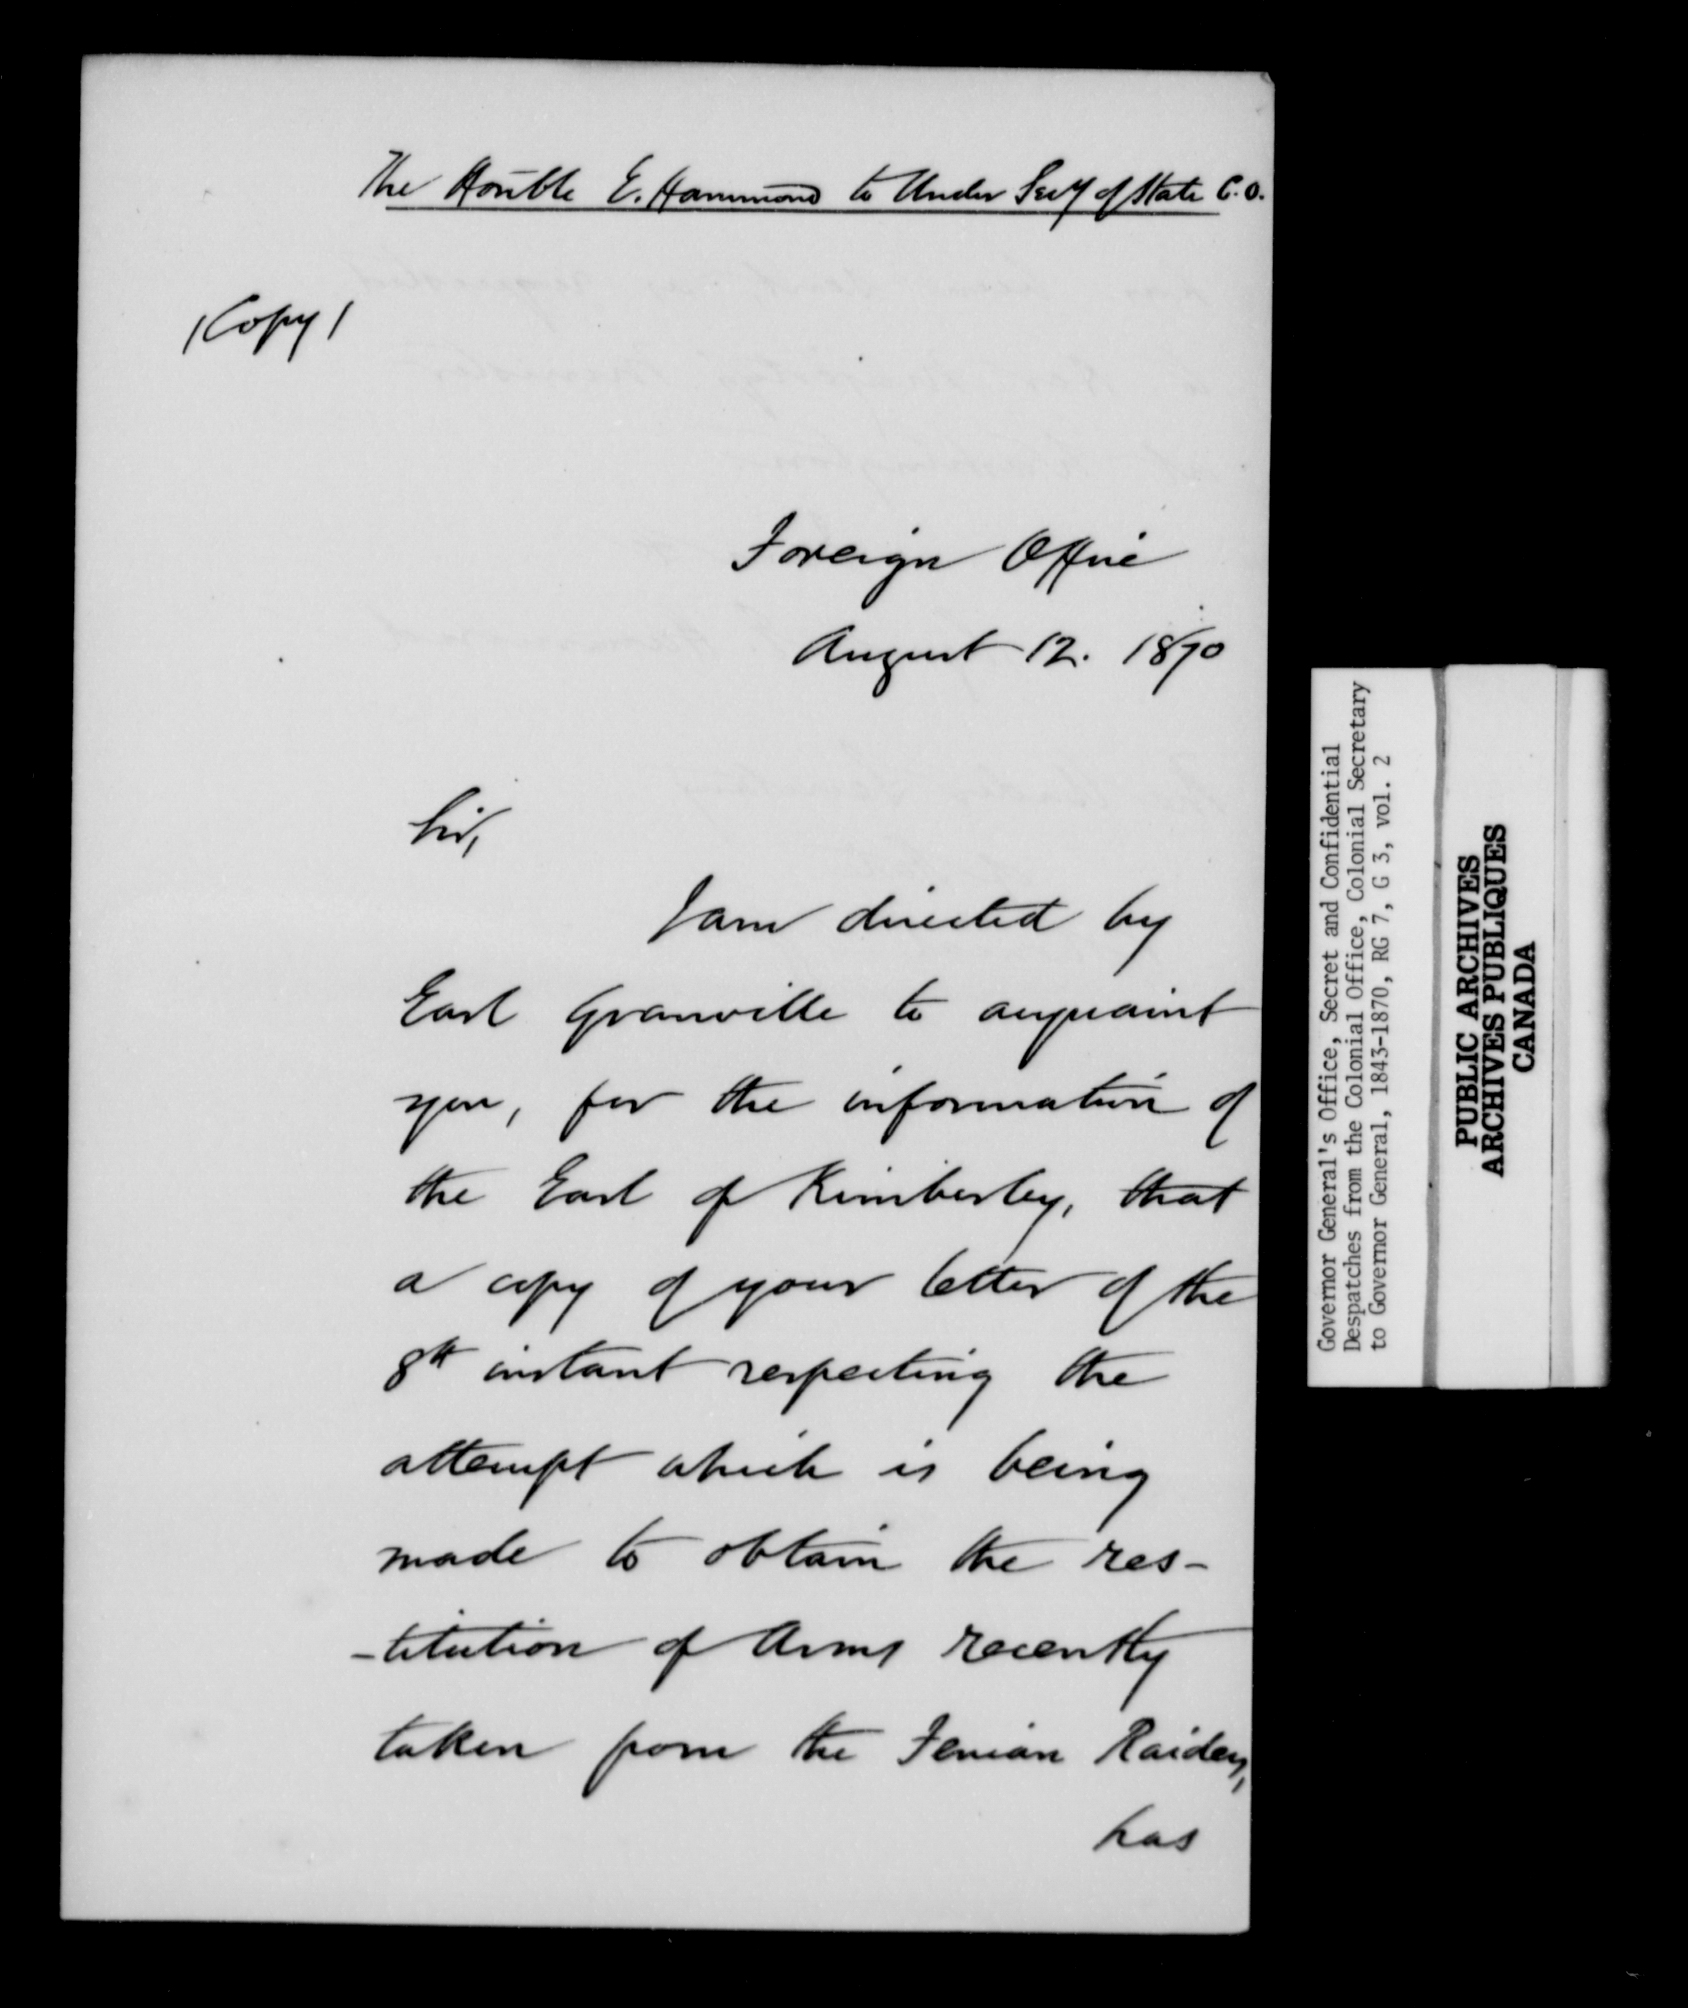 The Honble E. Hammond to Under Secy of State C.O.
(Copy)
Foreign Office
August 12. 1870
Sir,
I am directed by
Earl Granville to acquaint
you, for the information of
the Earl of Kimberley, that
a copy of your letter of the
8th instant respecting the
attempt which is being
made to obtain the res-
-titution of Arms recently
taken from the Fenian Raiders,
has
Governor General's Office, Secret and Confidential
Despatches from the Colonial Office, Colonial Secretary
to Governor General, 1843-1870, RG 7, G 3, vol. 2
PUBLIC ARCHIVES
ARCHIVES PUBLIQUES
CANADA